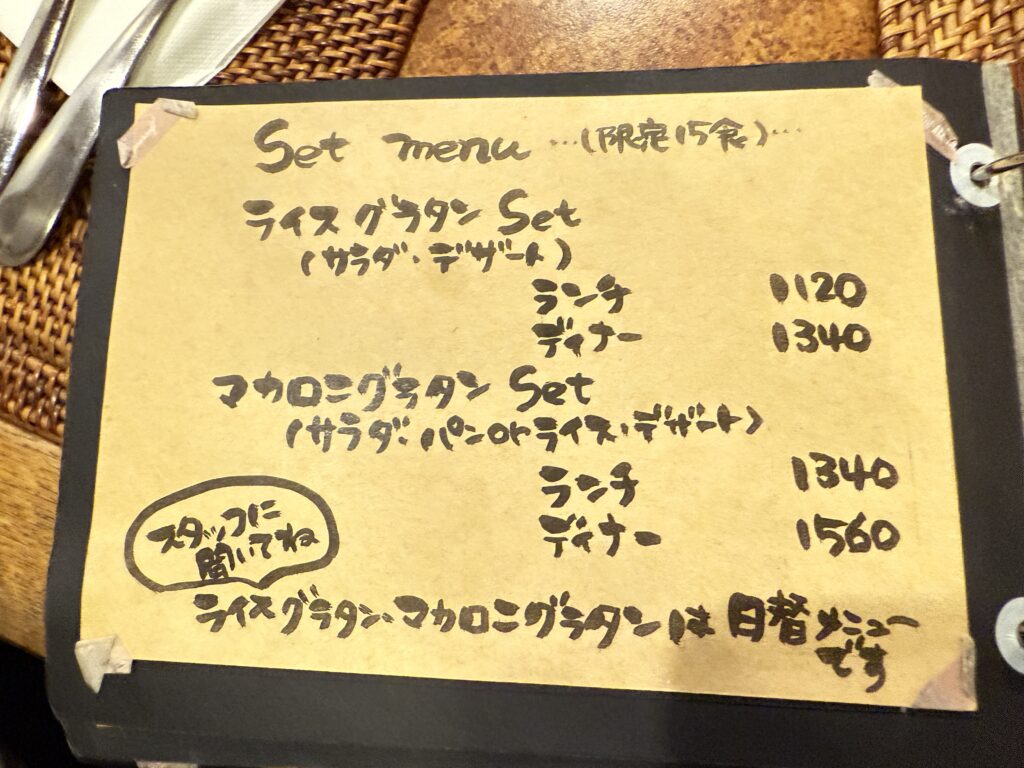 Set menu …(限定15食)…
ライスグラタン Set
(サラダ・デザート)
ランチ 1120
ディナー 1340
マカロニグラタン Set
(サラダ、パンorライス・デザート)
ランチ 1340
ディナー 1560
スタッフに
聞いてね
ライスグラタン・マカロニグラタンは日替メニュー
です